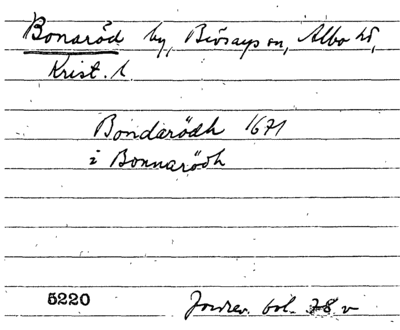 Bonaröd by, Brösarps sn, Albo hd,
Krist. l
Bondarödh 1671
i Bonnarödh
5220 Jordrev. bol. 78 v